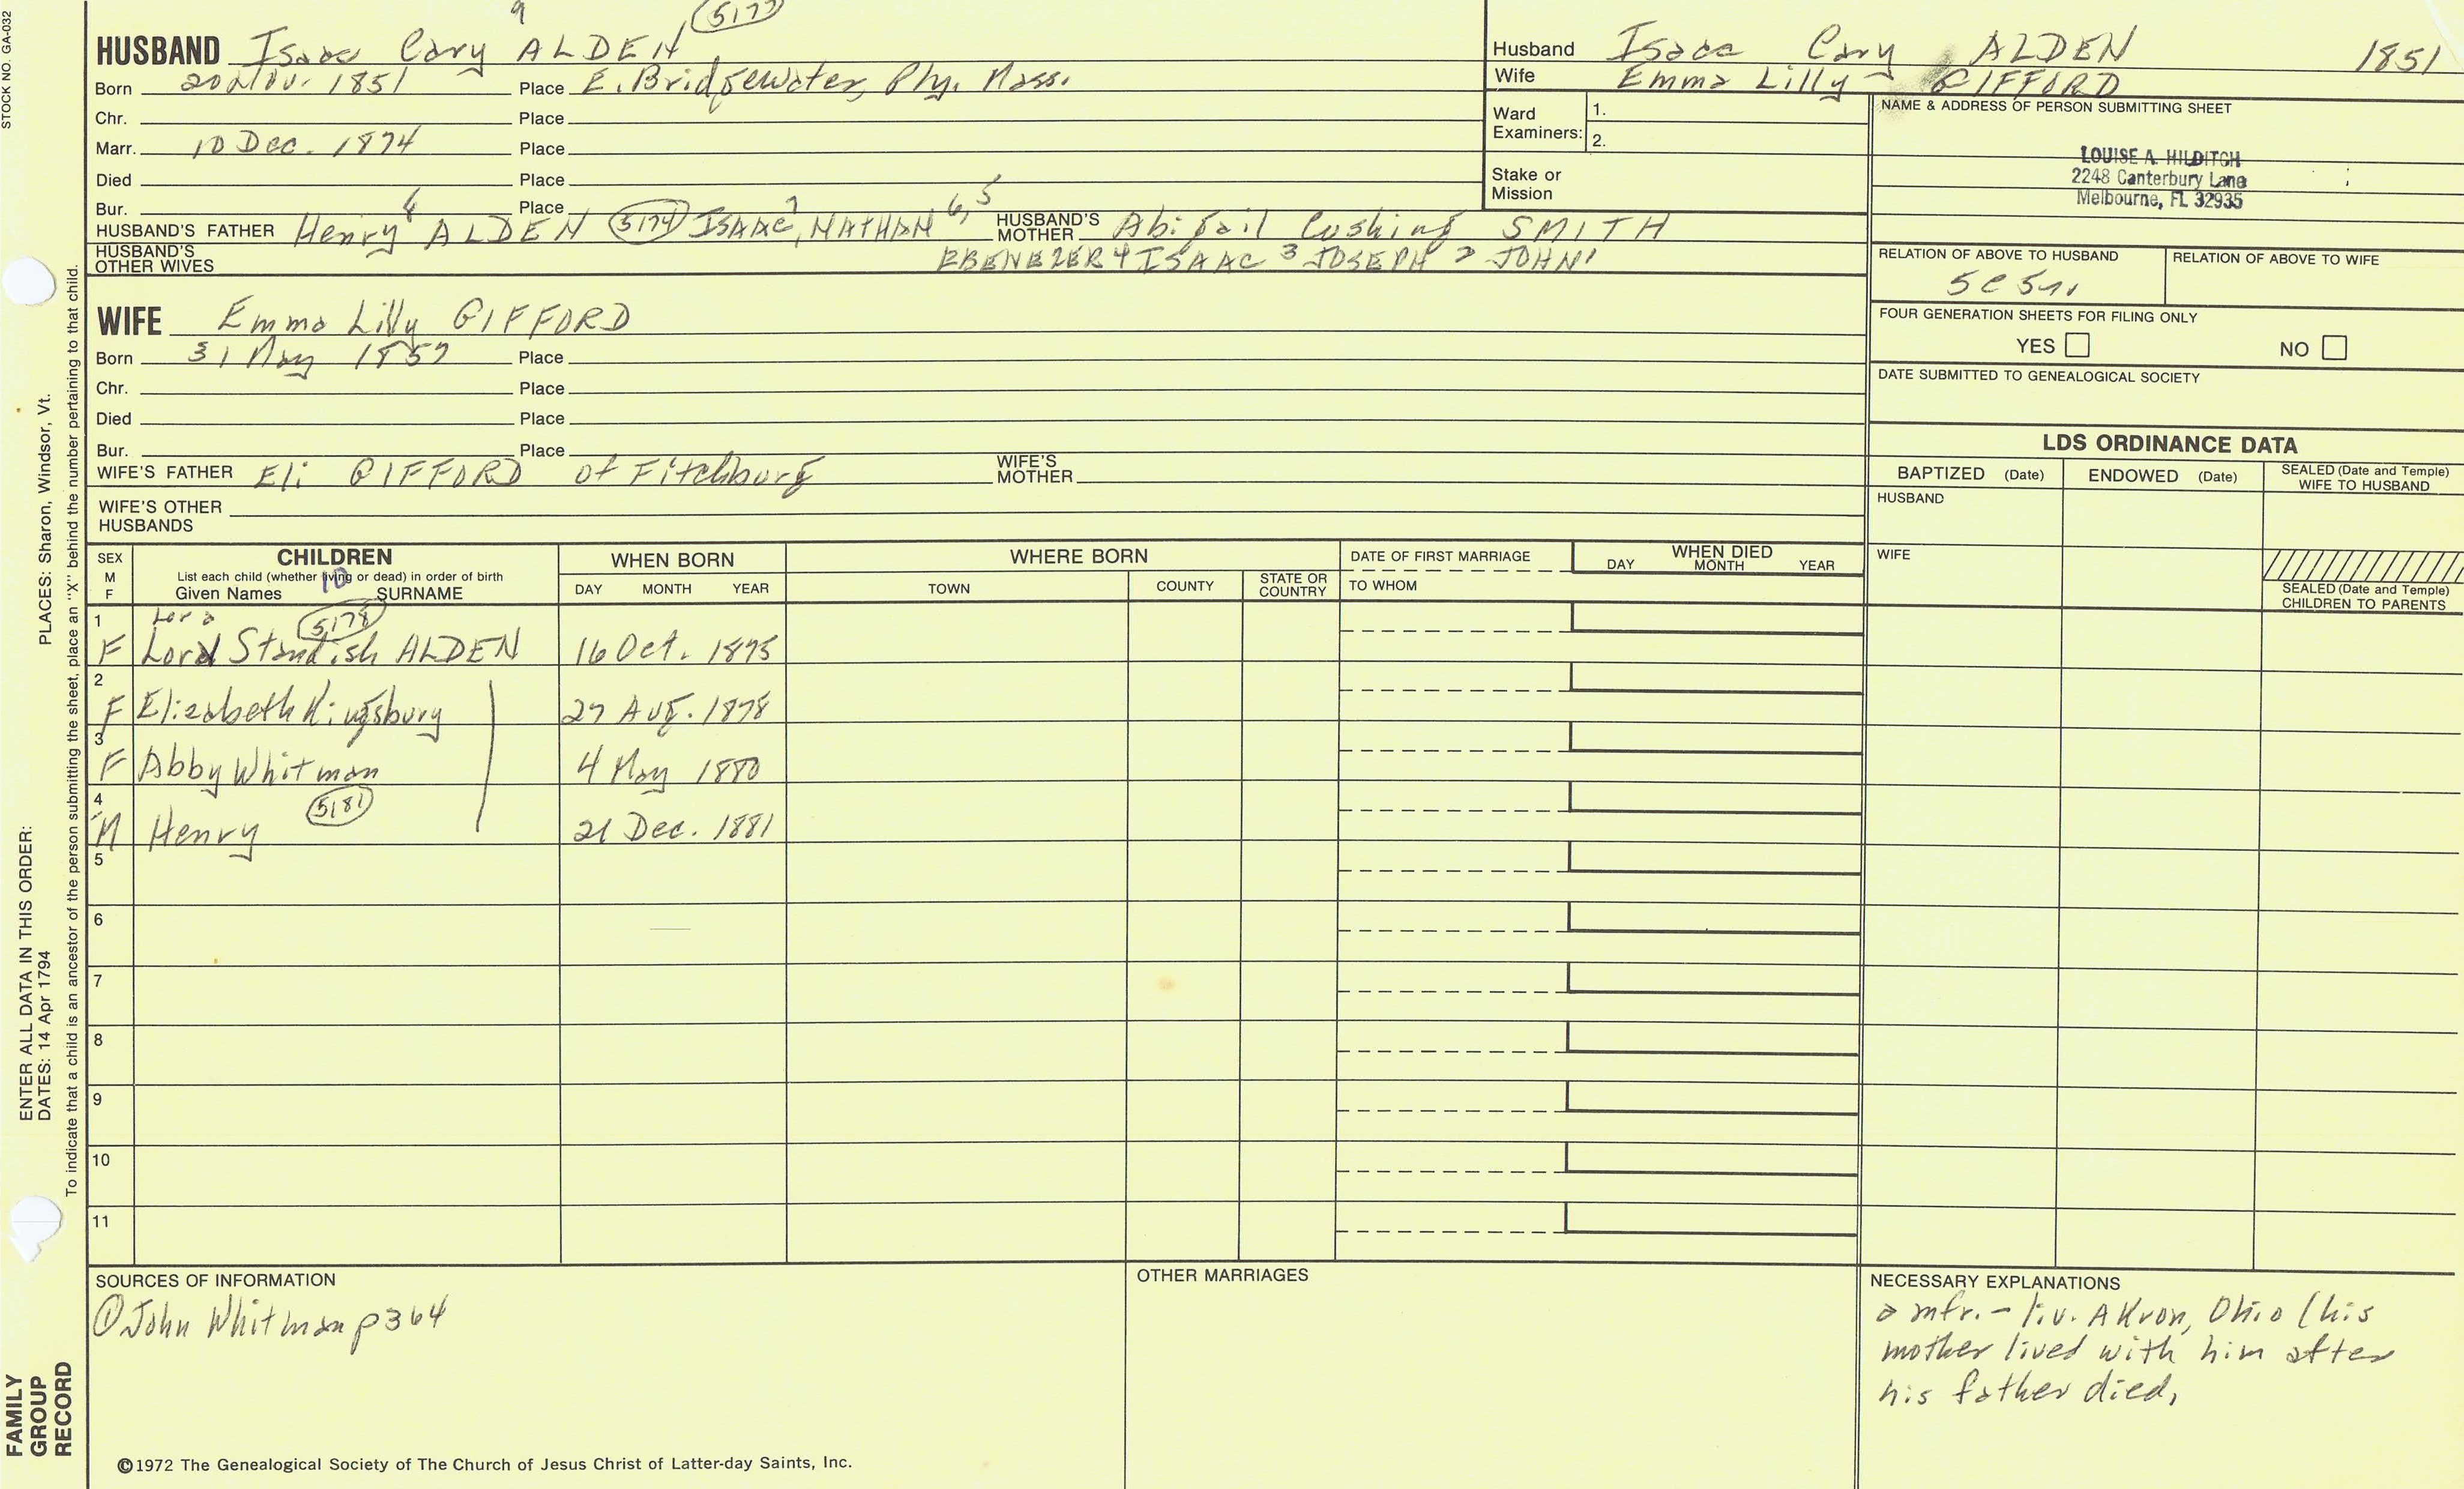 STOCK NO. GA-032
9 5177
HUSBAND Isaac Cary ALDEN
Born 20 Nov. 1851 Place E. Bridgewater, Ply. Mass.
Chr. Place
Marr. 10 Dec. 1874 Place
Died Place
Bur. Place
HUSBAND'S FATHER Henry 8 ALDEN 5174 ISAAC 7, NATHAN 6,5 HUSBAND'S MOTHER Abigail Cushing SMITH
HUSBAND'S OTHER WIVES EBENEZER 4 ISAAC 3 JOSEPH 2 JOHN 1
WIFE Emma Lilly GIFFORD
Born 31 May 1857 Place
Chr. Place
Died Place
Bur. Place
WIFE'S FATHER Eli GIFFORD of Fitchburg WIFE'S MOTHER
WIFE'S OTHER HUSBANDS
Husband Isaac Cary ALDEN 1851
Wife Emma Lilly GIFFORD
Ward Examiners: 1.
2.
Stake or Mission
NAME & ADDRESS OF PERSON SUBMITTING SHEET
LOUISE A. HILDITCH
2248 Canterbury Lane
Melbourne, FL 32935
RELATION OF ABOVE TO HUSBAND RELATION OF ABOVE TO WIFE
5C5r.
FOUR GENERATION SHEETS FOR FILING ONLY
YES NO
DATE SUBMITTED TO GENEALOGICAL SOCIETY
LDS ORDINANCE DATA
BAPTIZED (Date) ENDOWED (Date) SEALED (Date and Temple) WIFE TO HUSBAND
HUSBAND
WIFE
SEALED (Date and Temple) CHILDREN TO PARENTS
SEX M F
CHILDREN
List each child (whether living or dead) in order of birth
Given Names 10 SURNAME
WHEN BORN
DAY MONTH YEAR
WHERE BORN
TOWN COUNTY STATE OR COUNTRY
DATE OF FIRST MARRIAGE
TO WHOM
WHEN DIED
DAY MONTH YEAR
Lora 5178
1 F Lord Standish ALDEN 16 Oct. 1875
2 F Elizabeth Kingsbury 27 Aug. 1878
3 F Abby Whitman 4 May 1880
5181
4 M Henry 21 Dec. 1881
5
6
7
8
9
10
11
SOURCES OF INFORMATION
① John Whitman p364
OTHER MARRIAGES
NECESSARY EXPLANATIONS
a mfr. - liv. Akron, Ohio (his
mother lived with him after
his father died,
©1972 The Genealogical Society of The Church of Jesus Christ of Latter-day Saints, Inc.
ENTER ALL DATA IN THIS ORDER:
DATES: 14 Apr 1794
PLACES: Sharon, Windsor, Vt.
To indicate that a child is an ancestor of the person submitting the sheet, place an "X" behind the number pertaining to that child.
FAMILY
GROUP
RECORD